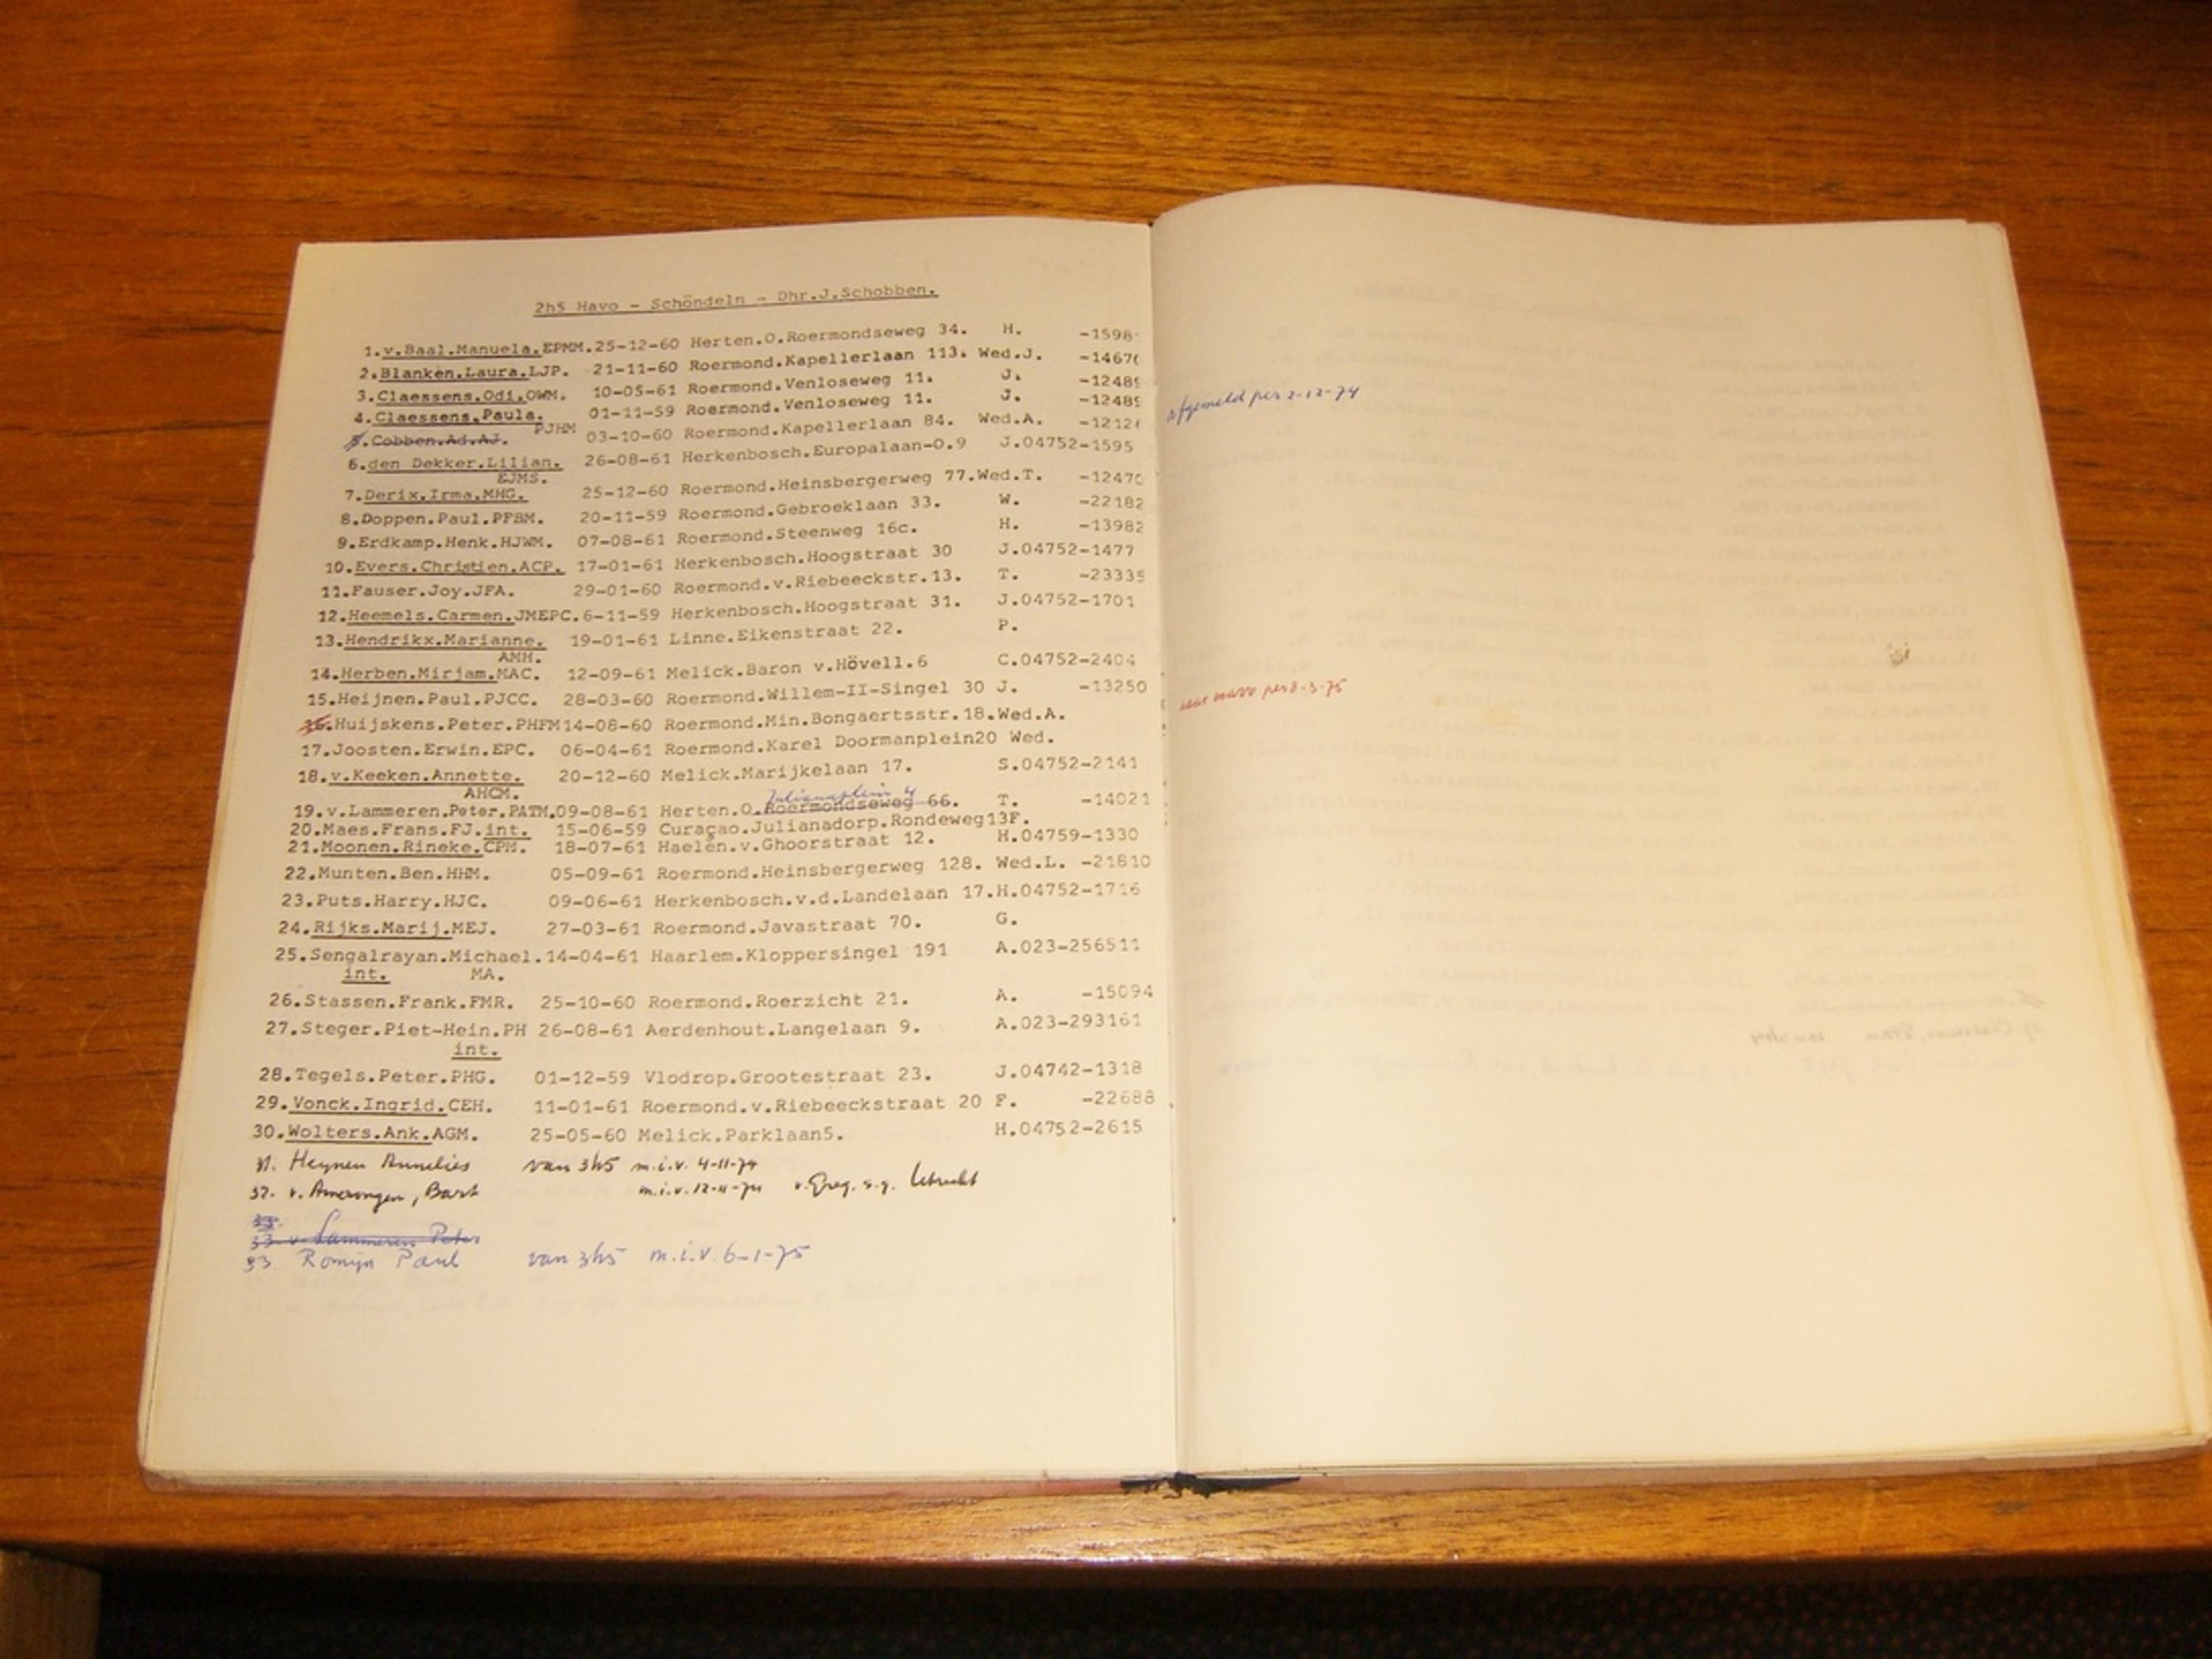 2h5 Havo - Schöndeln - Dhr.J.Schobben.
1.v.Baal.Manuela.EPMM.25-12-60 Herten.O.Roermondseweg 34. H. -1598
2.Blanken.Laura.LJP. 21-11-60 Roermond.Kapellerlaan 113. Wed.J. -1467
3.Claessens.Odi.OWM. 10-05-61 Roermond.Venloseweg 11. J. -1248
4.Claessens.Paula. 01-11-59 Roermond.Venloseweg 11. J. -1248
PJHM
5.Cobben.Ad.AJ. 03-10-60 Roermond.Kapellerlaan 84. Wed.A. -1212 afgemeld per 2-12-74
6.den Dekker.Lilian. 26-08-61 Herkenbosch.Europalaan-O.9 J.04752-1595
EJMS.
7.Derix.Irma.MHG. 25-12-60 Roermond.Heinsbergerweg 77.Wed.T. -1247
8.Doppen.Paul.PFBM. 20-11-59 Roermond.Gebroeklaan 33. W. -22182
9.Erdkamp.Henk.HJWM. 07-08-61 Roermond.Steenweg 16c. H. -13982
10.Evers.Christien.ACP. 17-01-61 Herkenbosch.Hoogstraat 30 J.04752-1477
11.Fauser.Joy.JFA. 29-01-60 Roermond.v.Riebeeckstr.13. T. -23335
12.Heemels.Carmen.JMEPC.6-11-59 Herkenbosch.Hoogstraat 31. J.04752-1701
13.Hendrikx.Marianne. 19-01-61 Linne.Eikenstraat 22. P.
AMH.
14.Herben.Mirjam.MAC. 12-09-61 Melick.Baron v.Hövell.6 C.04752-2404
15.Heijnen.Paul.PJCC. 28-03-60 Roermond.Willem-II-Singel 30 J. -13250
16.Huijskens.Peter.PHFM14-08-60 Roermond.Min.Bongaertsstr.18.Wed.A. naar mavo per 8-3-75
17.Joosten.Erwin.EPC. 06-04-61 Roermond.Karel Doormanplein20 Wed.
18.v.Keeken.Annette. 20-12-60 Melick.Marijkelaan 17. S.04752-2141
AHCM.
Julianaplein 4
19.v.Lammeren.Peter.PATM.09-08-61 Herten.O.Roermondseweg 66. T. -14021
20.Maes.Frans.FJ.int. 15-06-59 Curaçao.Julianadorp.Rondeweg13F.
21.Moonen.Rineke.CPM. 18-07-61 Haelen.v.Ghoorstraat 12. H.04759-1330
22.Munten.Ben.HHM. 05-09-61 Roermond.Heinsbergerweg 128. Wed.L. -21810
23.Puts.Harry.HJC. 09-06-61 Herkenbosch.v.d.Landelaan 17.H.04752-1716
24.Rijks.Marij.MEJ. 27-03-61 Roermond.Javastraat 70. G.
25.Sengalrayan.Michael.14-04-61 Haarlem.Kloppersingel 191 A.023-256511
int. MA.
26.Stassen.Frank.FMR. 25-10-60 Roermond.Roerzicht 21. A. -15094
27.Steger.Piet-Hein.PH 26-08-61 Aerdenhout.Langelaan 9. A.023-293161
int.
28.Tegels.Peter.PHG. 01-12-59 Vlodrop.Grootestraat 23. J.04742-1318
29.Vonck.Ingrid.CEH. 11-01-61 Roermond.v.Riebeeckstraat 20 F. -22688
30.Wolters.Ank.AGM. 25-05-60 Melick.Parklaan5. H.04752-2615
31. Heynen Annelies van 3h5 m.i.v. 4-11-74
32. v. Amerongen, Bart m.i.v. 12-11-74 v. Greg. s.g. Utrecht
33.
33 v Lammeren Peter
33 Romijn Paul van 3h5 m.i.v. 6-1-75